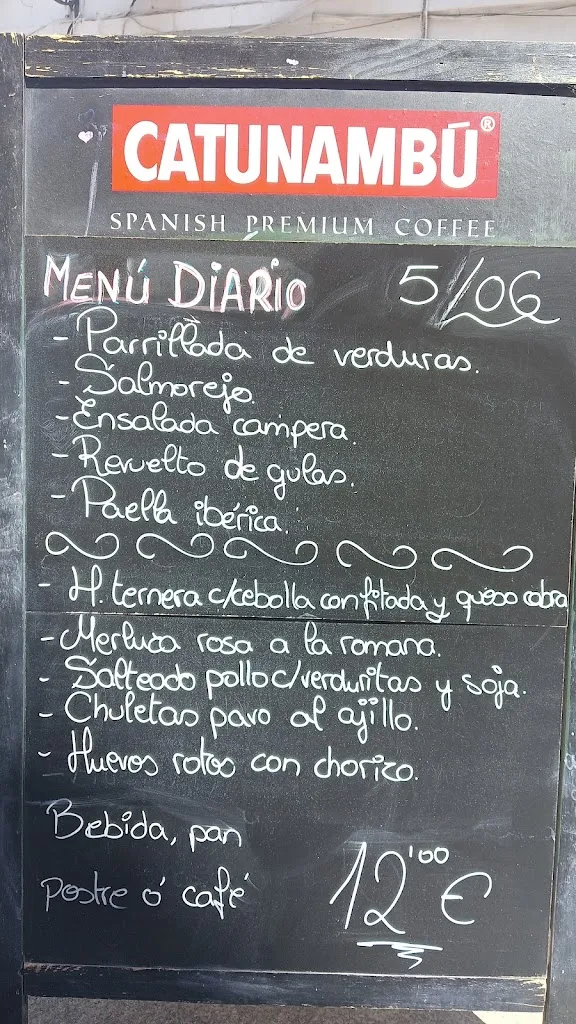 CATUNAMBÚ®
SPANISH PREMIUM COFFEE
MENÚ DIARIO 5/06
- Parrillada de verduras.
- Salmorejo.
- Ensalada campera.
- Revuelto de gulas.
- Paella ibérica.
- H. ternera c/cebolla confitada y queso cabra
- Merluza rosa a la romana.
- Salteado pollo c/verduritas y soja.
- Chuletas pavo al ajillo.
- Huevos rotos con chorizo.
Bebida, pan
postre ó café 12'00 €